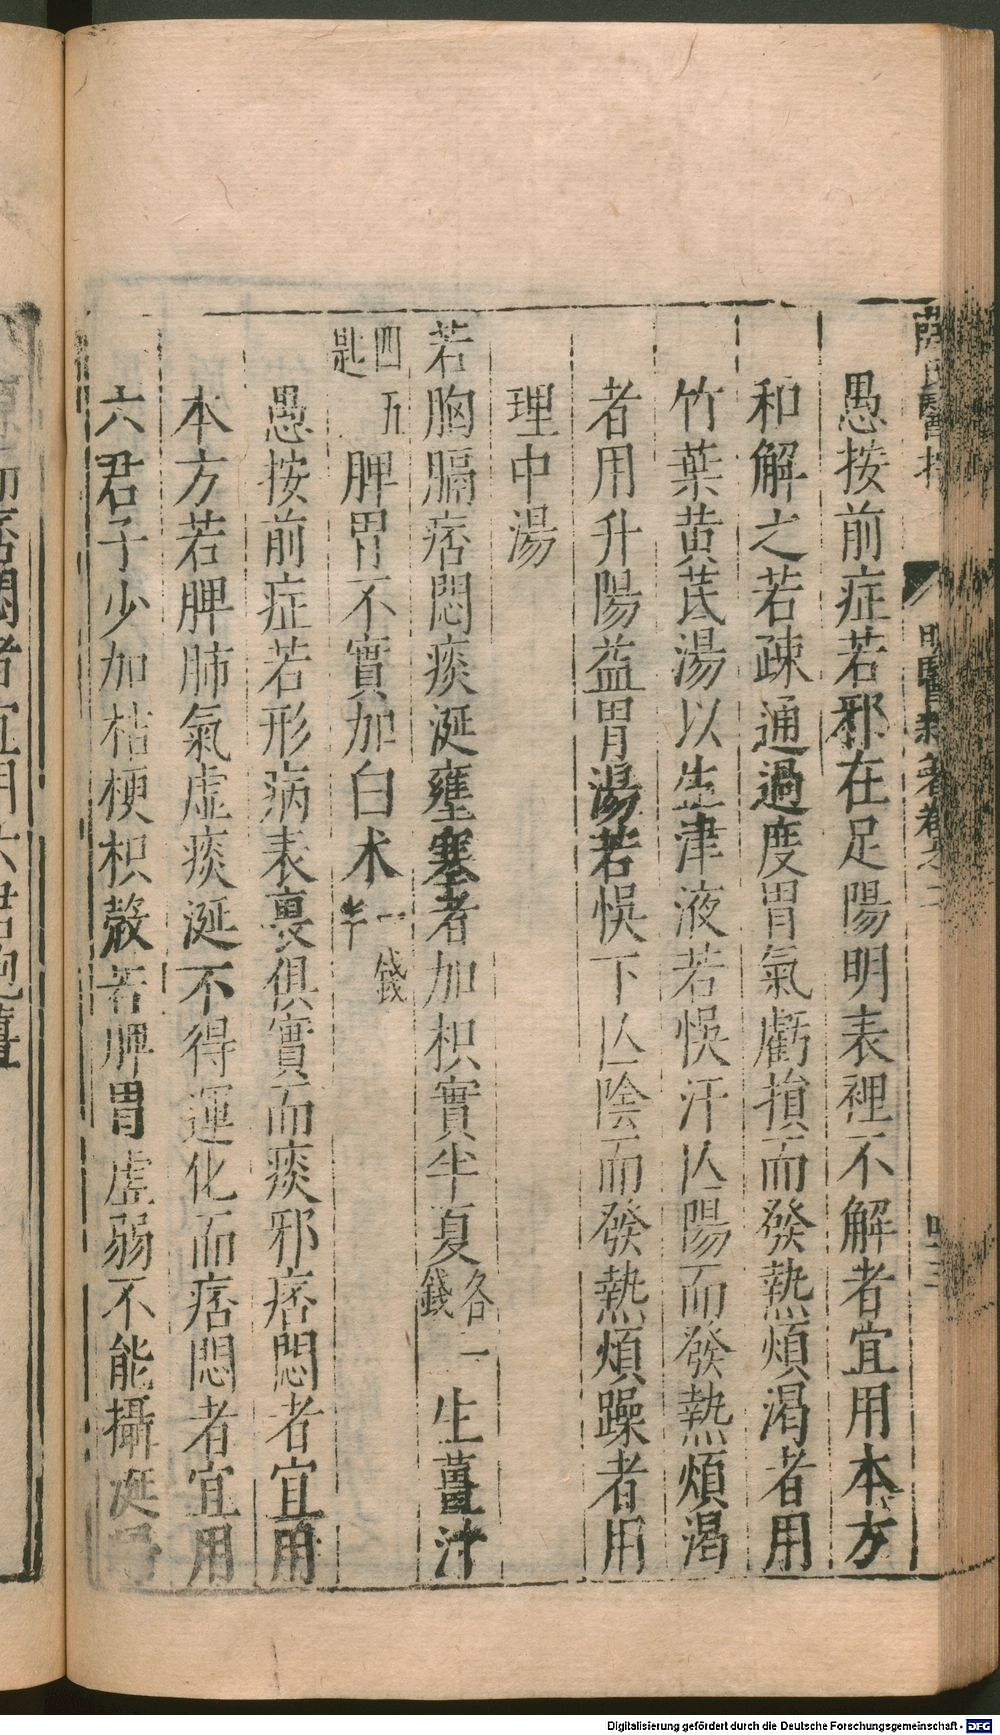 薛氏醫按 明醫雜著卷之二
愚按前症若邪在足陽明表裡不解者宜用本方
和解之若疎通過度胃氣虧損而發熱煩渴者用
竹葉黄芪湯以生津液若悞汗亾陽而發熱煩渴
者用升陽益胃湯若悞下亾陰而發熱煩躁者用
理中湯
若胸膈痞悶痰涎壅塞者加枳實半夏各二錢生薑汁
四五匙脾胃不實加白朮一錢半
愚按前症若形病表裏俱實而痰邪痞悶者宜用
本方若脾肺氣虚痰涎不得運化而痞悶者宜用
六君子少加桔梗枳殼若脾胃虚弱不能攝涎
而痞悶者宜用六君炮薑
Digitalisierung gefördert durch die Deutsche Forschungsgemeinschaft - DFG